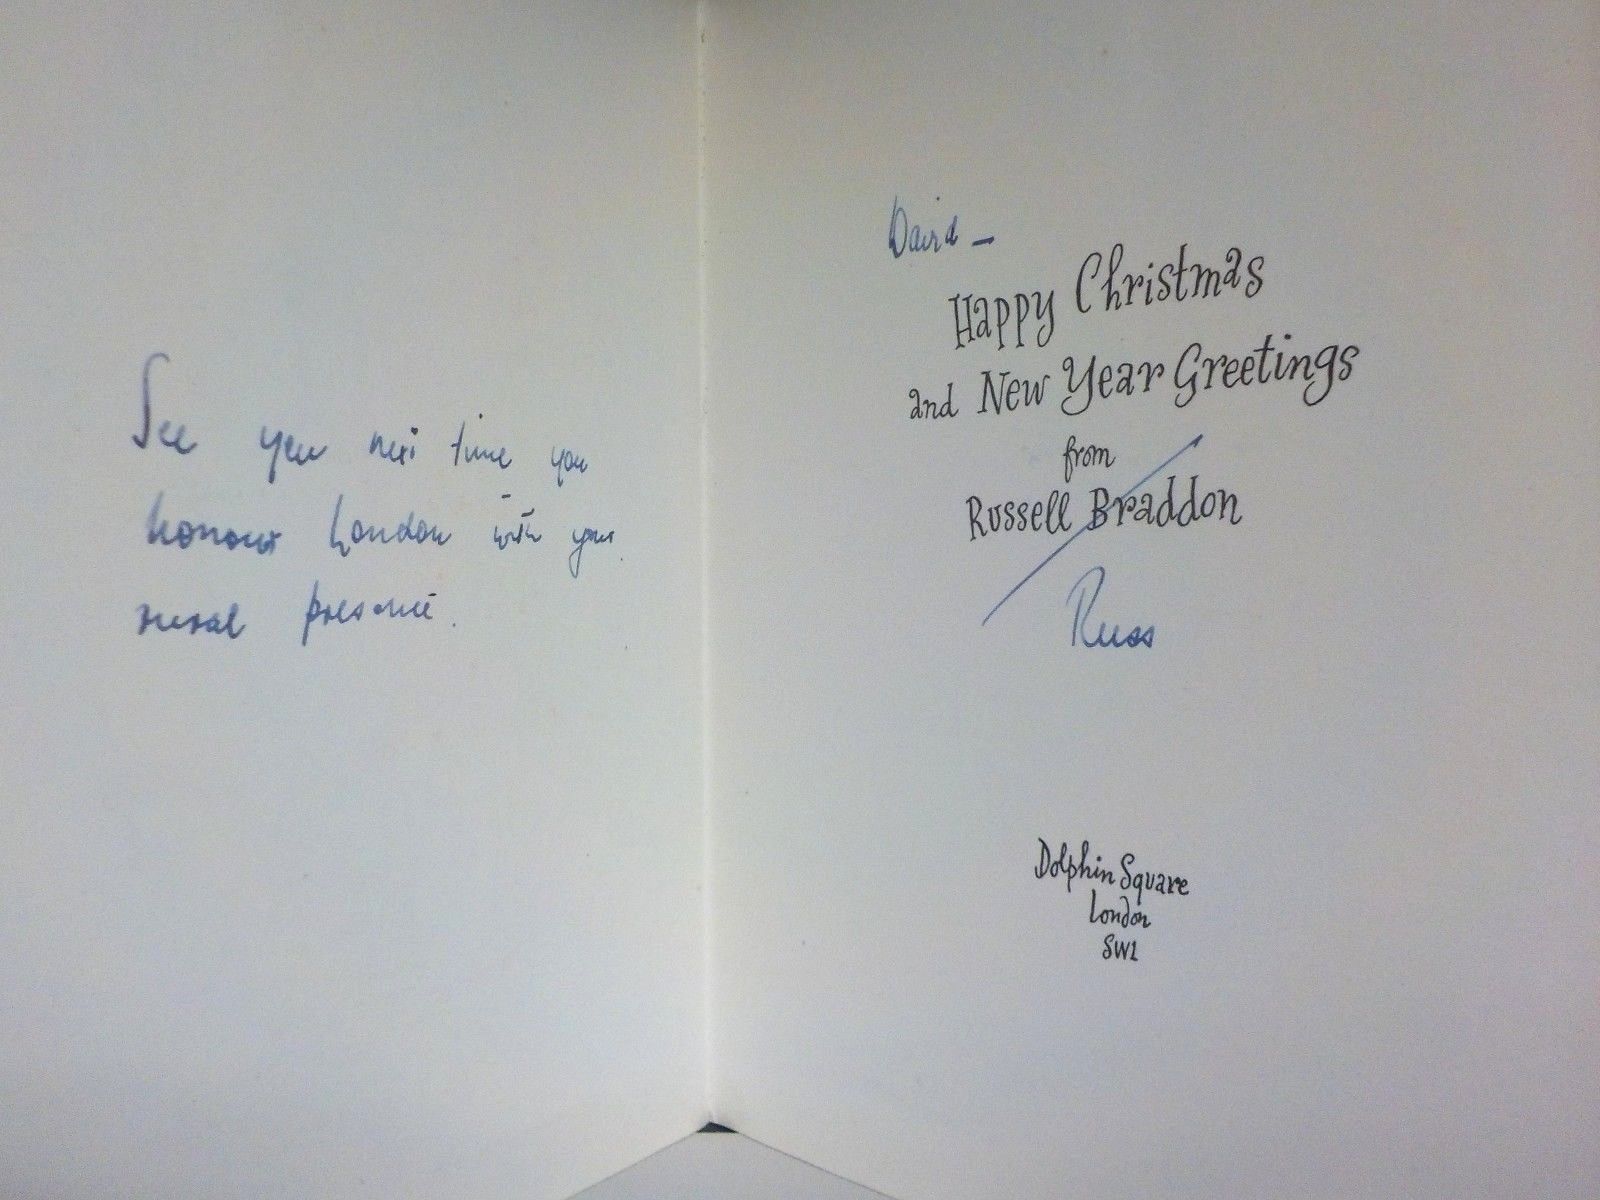 See you next time you
honour London with your
rural presence.
David –
Happy Christmas
and New Year Greetings
from
Russell Braddon
Russ
Dolphin Square
London
SW1